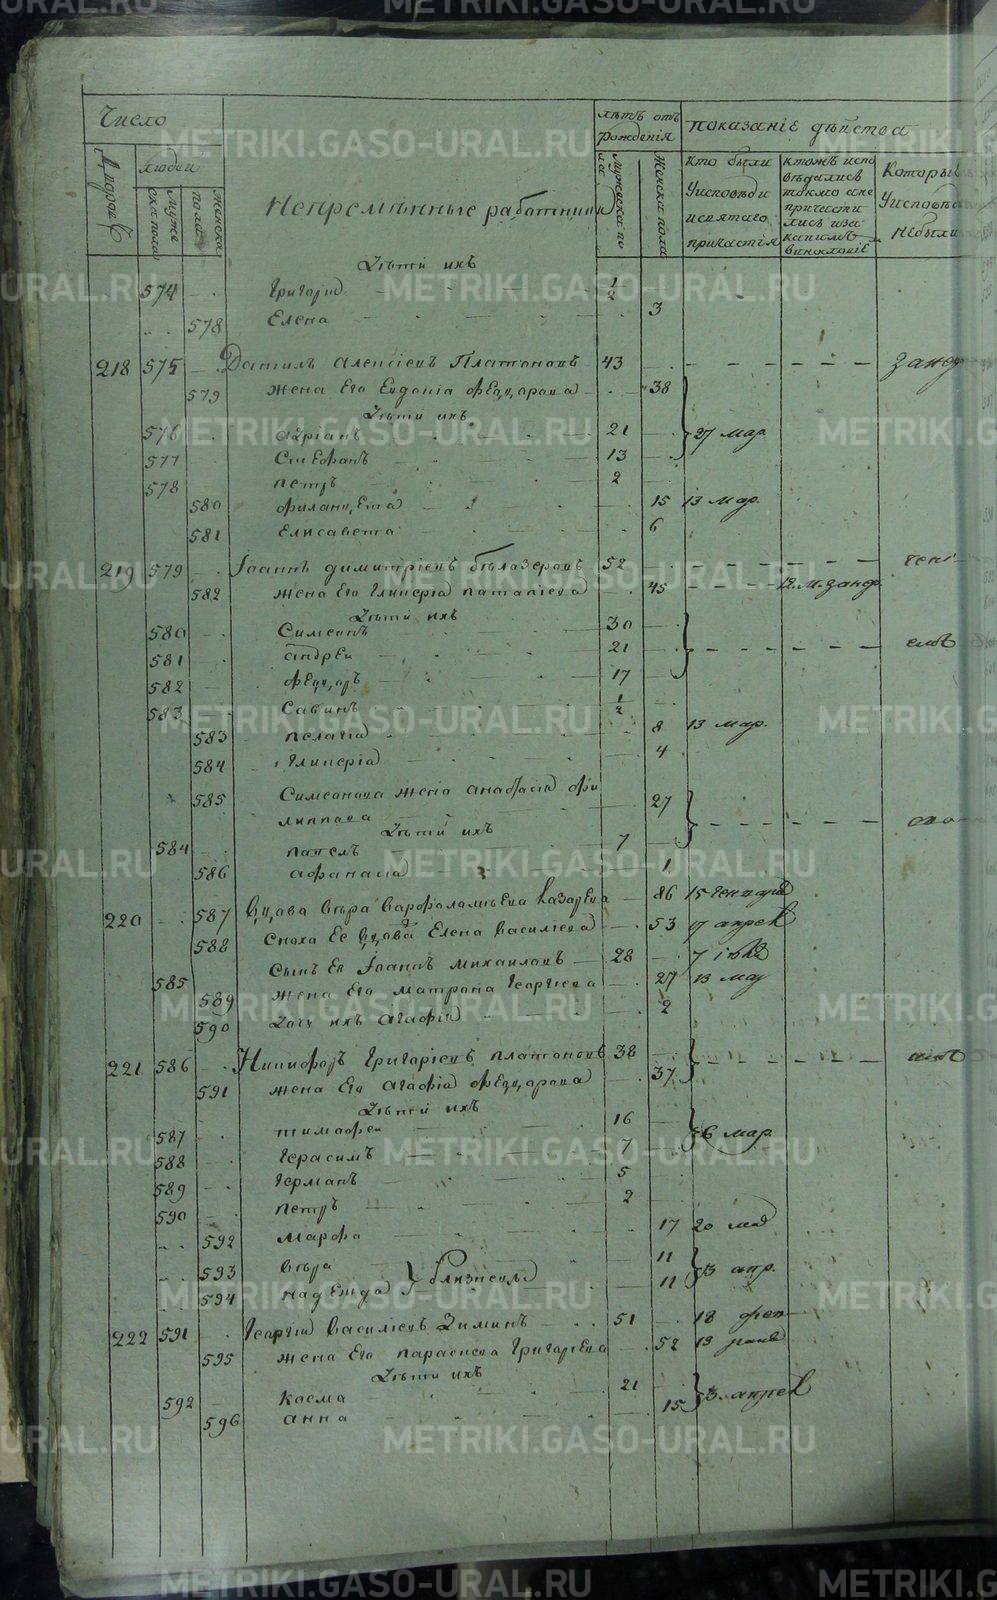 METRIKI.GASO-URAL.RU
Число
лѣтъ отъ рожденія
Показаніе дѣйства
Дворовъ
людей
Мужеска пола
Женска пола
Непремѣнные работники
Мужеска по
Женска пола
кто были Уисповѣди исвятаго причастія
ктожъ испо вѣдались токмо а не причасти лись иза какимъ виновоніе
Которые Уисповѣд небыли
Дѣти ихъ
574 Григорій 1/2
578 Елена 3
218 575 Данилъ Алексіевъ Платоновъ 43
579 жена Его Евдокія Феодорова 38
Дѣти ихъ
576 Адріанъ 21 27 мар.
577 Стефанъ 13
578 Петръ 2
580 15 13 мар.
581 Елисавета 6
219 579 Іоаннъ Димитріевъ Бѣлазеровъ 52
582 жена Его Гликерія 45
Дѣти ихъ
580 Симеонъ 30
581 Андрей 21
582 Феодоръ 17
583 Савинъ 1/2
583 Пелагія 8 13 мар.
584 Гликерія 4
585 Симеонова жена Анастасія Фи 27
липпова
Дѣти ихъ
584 7
586 1
220 587 Вдова Вѣра Варфоломѣева 86
588 Сноха Ее вдова Елена Василіева 53
585 Сынъ Ея Іоаннъ Михаиловъ 28
589 жена Его Матрона Георгіева 27 13 мар
590 Дочь ихъ Агафія 2
221 586 Никифоръ Григоріевъ Платоновъ 38
591 жена Его Агафія Феодорова 37
Дѣти ихъ
587 Тимофей 16
588 Герасимъ 7
589 Германъ 5
590 Петръ 2
592 Марфа 17 20 мая
593 Вѣра 11 апр.
594 Надежда близнецы 11
222 591 Георгій Василіевъ Зиминъ 51 18
595 жена Его Параскева Григоріева 52
Дѣти ихъ
592 Косма 21
596 Анна 15